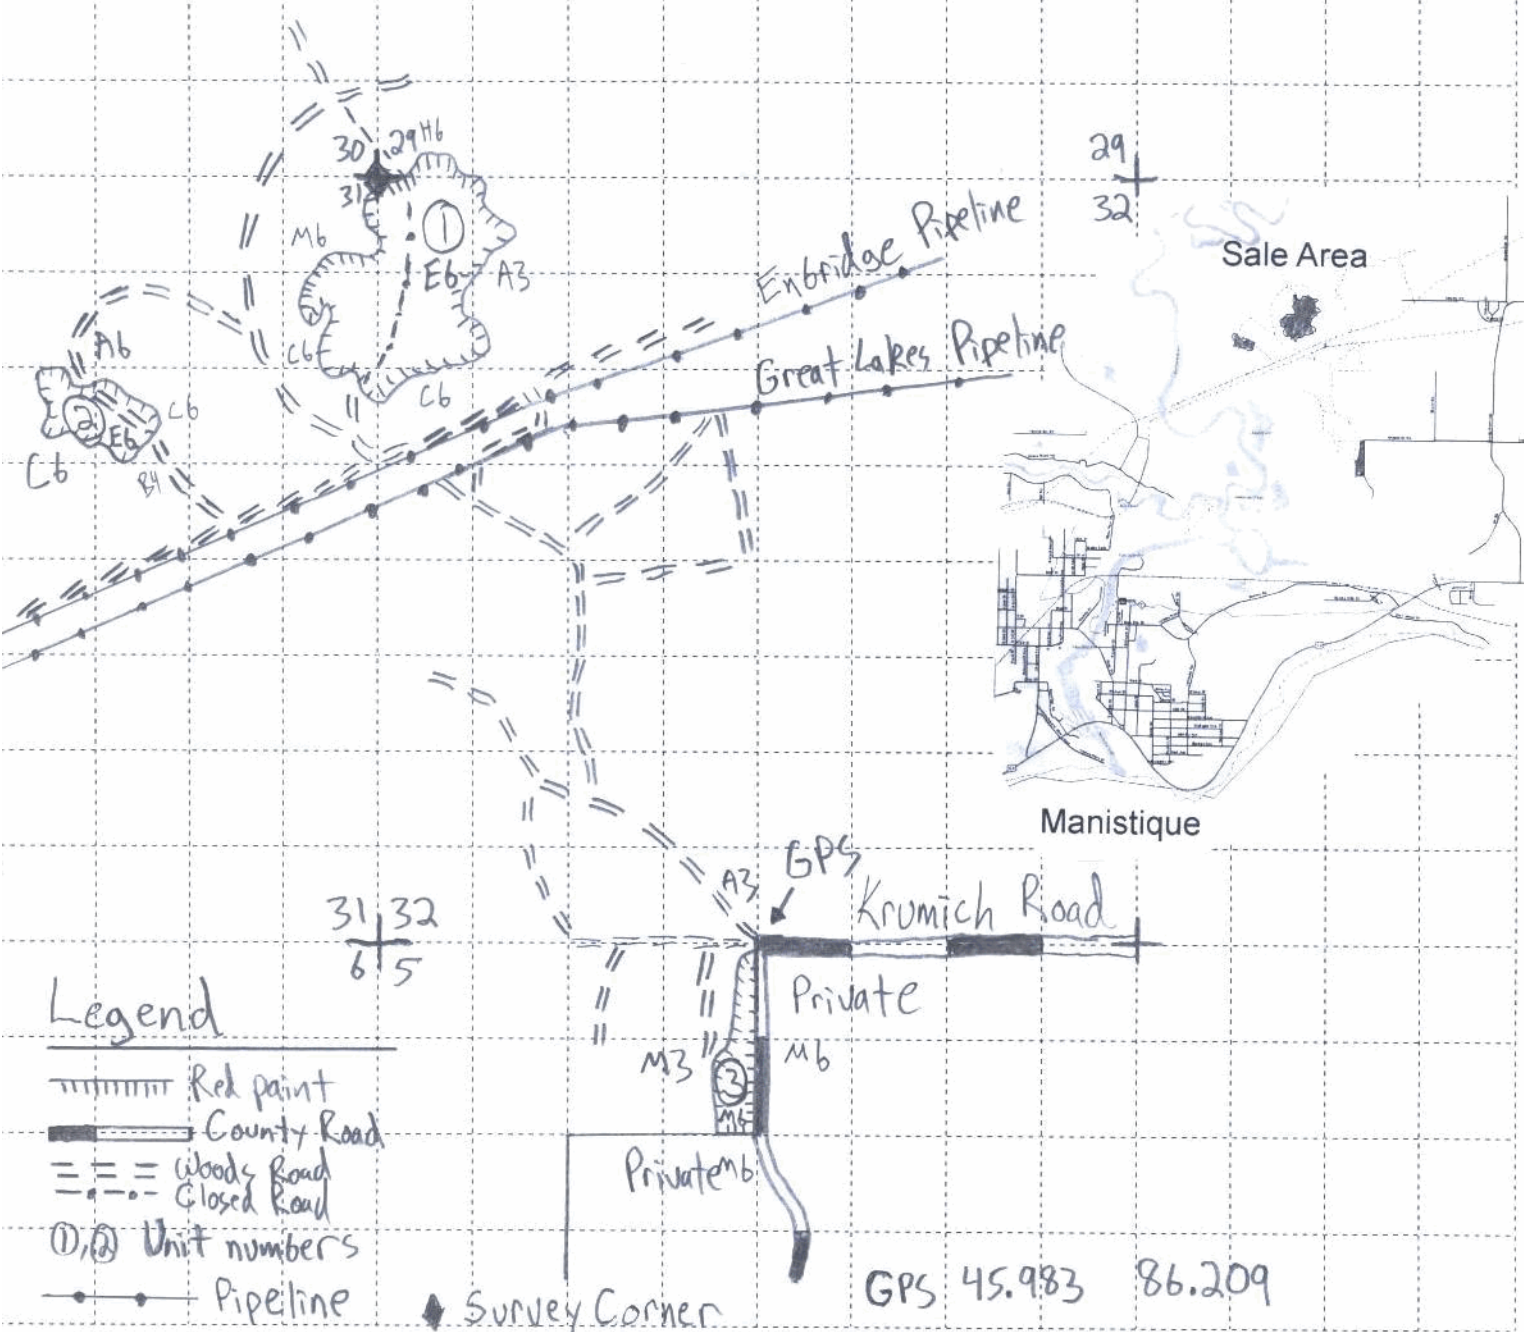 30 29 H6
31
M6
1
E6 A3
C6
C6
A6
2
E6
C6
C6
B4
Enbridge Pipeline
Great Lakes Pipeline
29
32
Sale Area
Manistique
GPS
A3
Krumich Road
31 32
6 5
Private
M3
M6
3
M6
Private M6
Legend
Red paint
County Road
Woods Road
Closed Road
1,2 Unit numbers
Pipeline
Survey Corner
GPS 45.983 86.209